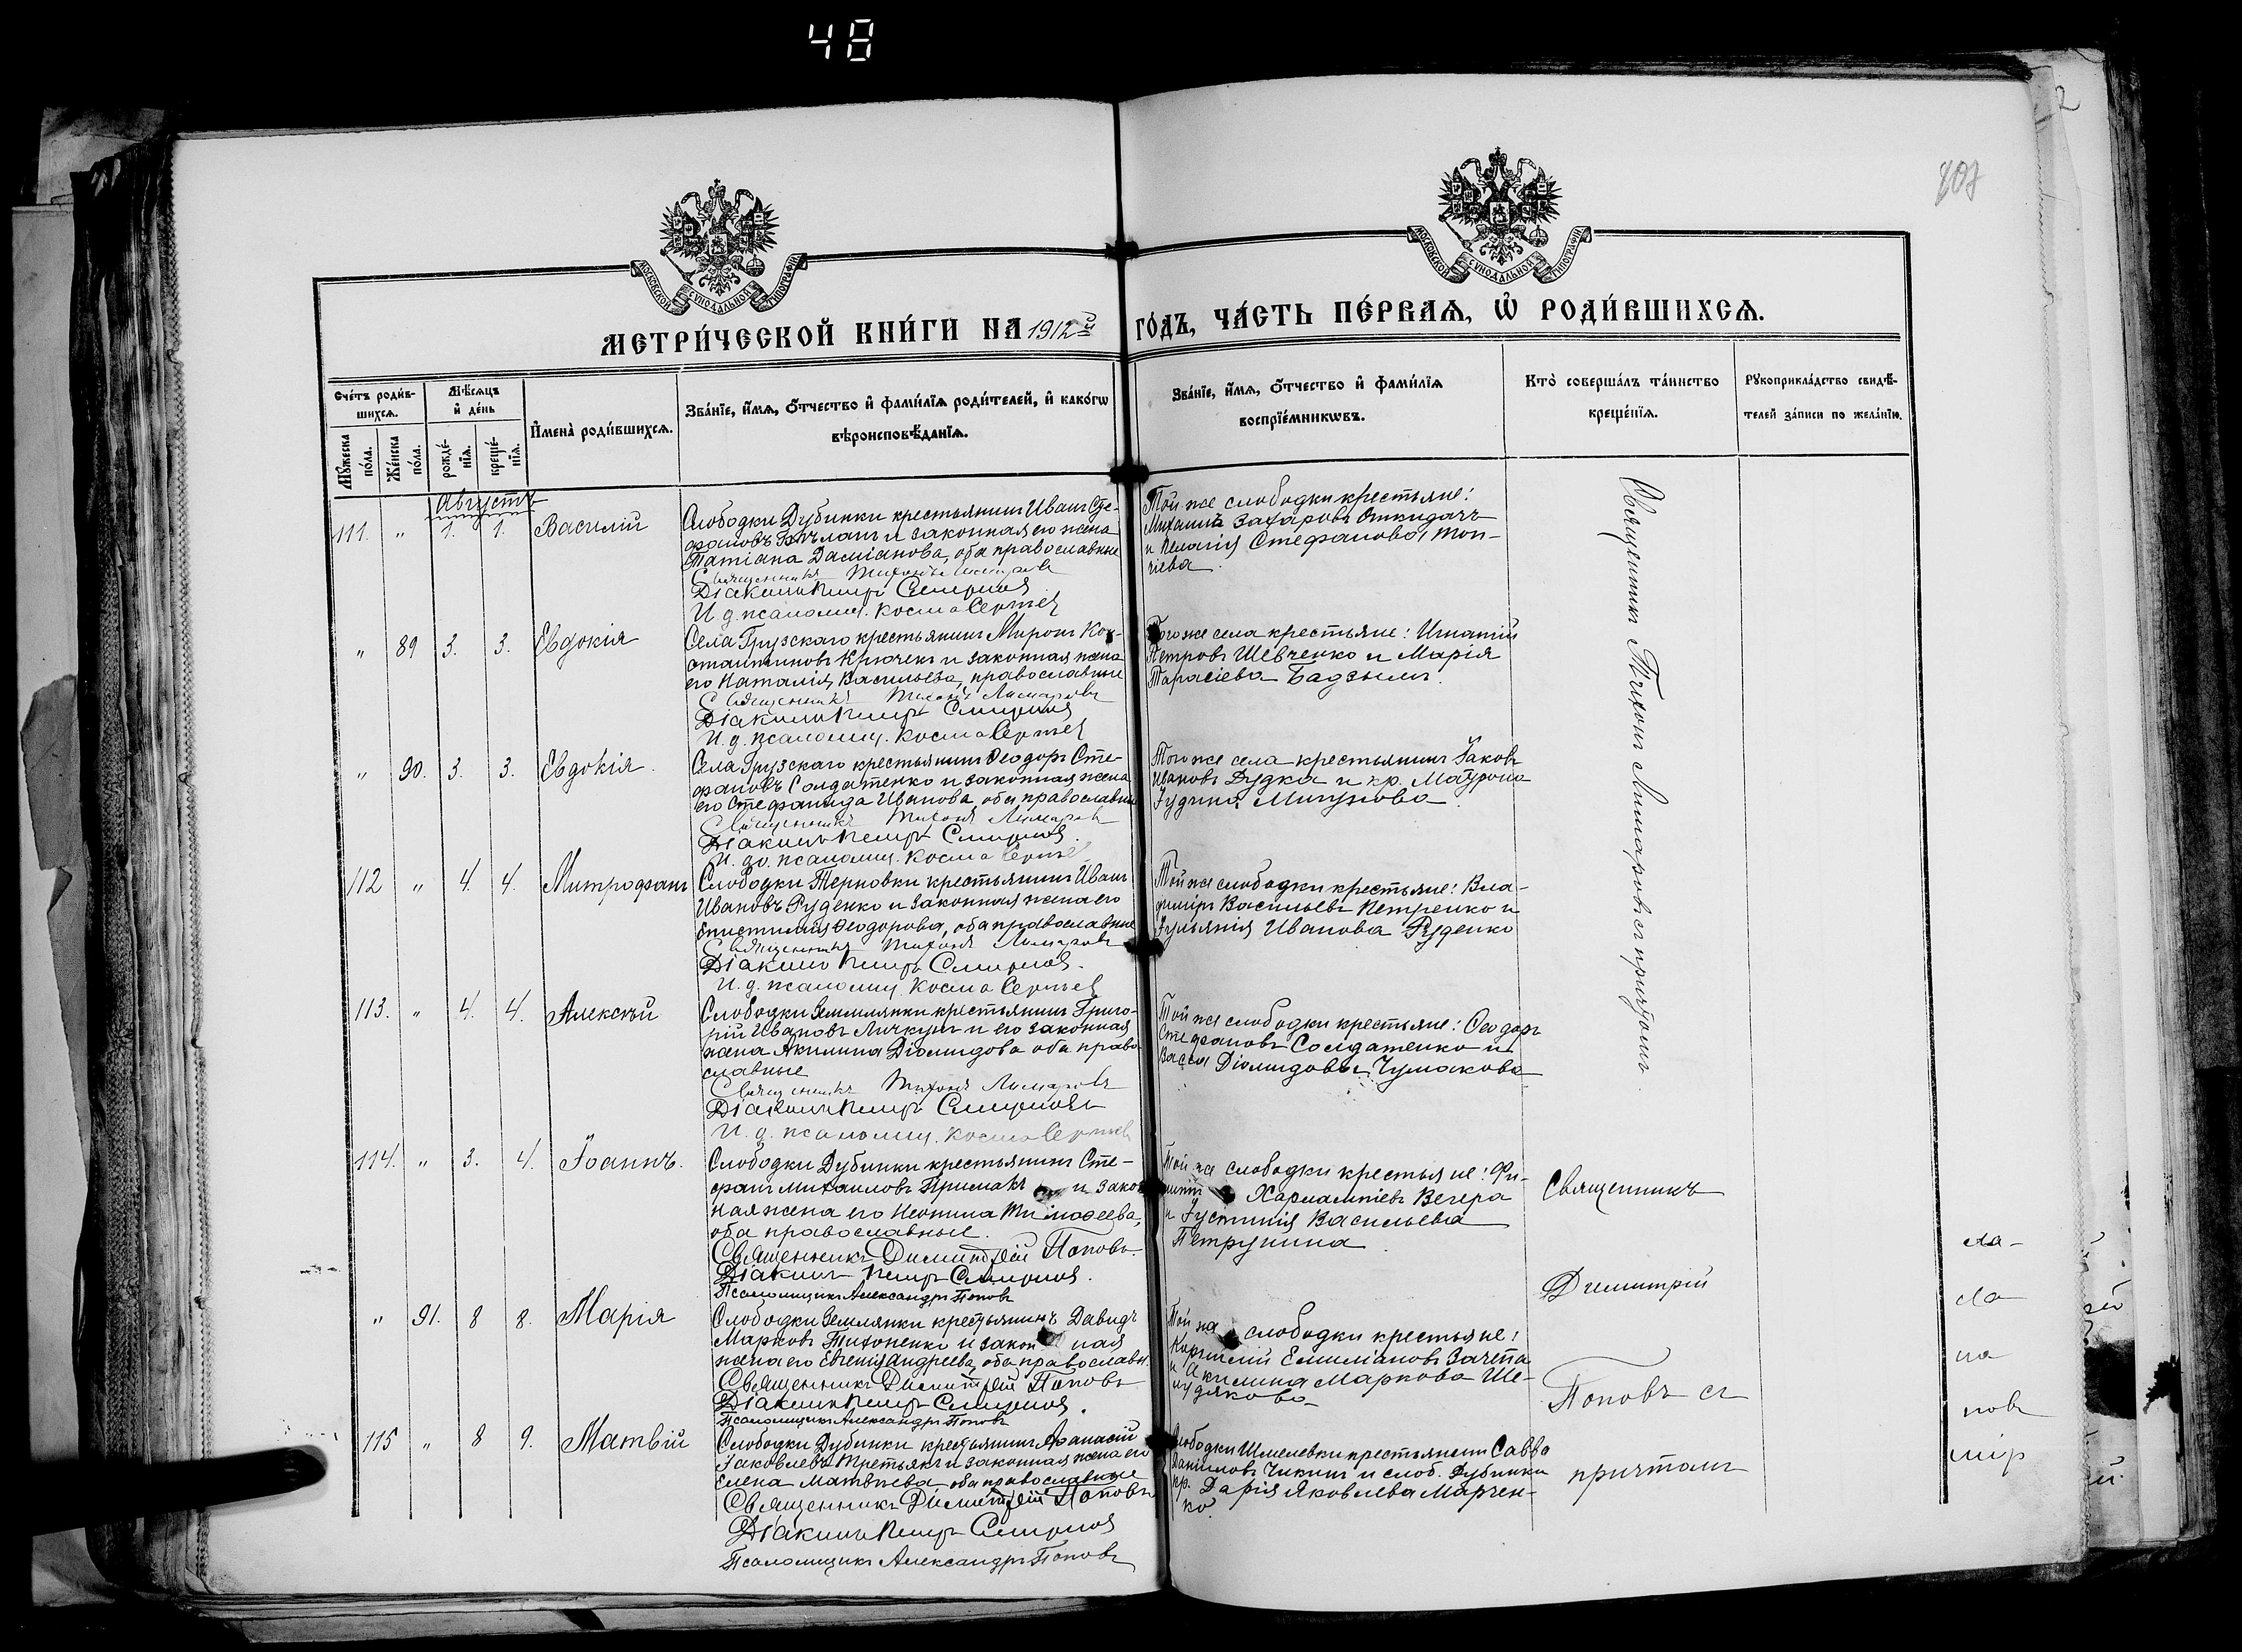 48
2
МОСКОВСКОЙ СУНОДАЛЬНОЙ ТИПОГРАФІИ
МОСКОВСКОЙ СУНОДАЛЬНОЙ ТИПОГРАФІИ
МЕТРИ́ЧЕСКОЙ КНИ́ГИ НА 1912й ГО́ДЪ, ЧА́СТЬ ПЕ́РВАѦ, Ѡ҆ РОДИ́ВШИХСѦ.
Сче́тъ роди́в-
шихсѧ.
Мꙋ́жеска по́ла.
Же́нска по́ла.
Мѣ́сѧцъ и҆ де́нь
рожде́-
нїѧ.
креще́-
нїѧ.
И҆мена̀ роди́вшихсѧ.
Зва́нїе, и҆́мѧ, ѻ҆́тчество и҆ фами́лїѧ роди́телей, и҆ како́гѡ
вѣроисповѣ́данїѧ.
Зва́нїе, и҆́мѧ, ѻ҆́тчество и҆ фами́лїѧ
воспрїе́мникѡвъ.
Кто̀ соверша́лъ та́инство
креще́нїѧ.
Рꙋкоприкла́дство свидѣ́-
телей за́писи по жела́нїю.
Августъ
111. " 1. 1. Василій
Слободки Дубинки крестьянинъ Иванъ Сте-
фановъ и законная его жена
Татіана Даміанова, оба православные
Священникъ Тихонъ Лимаровъ
Діаконъ Петръ Смирновъ
И. д. псаломщ. Косма Сергѣев
Той же слободки крестьяне:
Михаилъ Захаровъ Откидачъ
и Пелагія Стефанова Топ-
чіева
Священникъ Тихонъ Лимаровъ съ причтомъ
" 89 3. 3. Евдокія
Села Грузскаго крестьянинъ Миронъ Кон-
стантиновъ Крючекъ и законная жена
его Наталія Васильева, православные
Священникъ Тихонъ Лимаровъ
Діаконъ Петръ Смирновъ
И. д. псаломщ. Косма Сергѣев
Того же села крестьяне: Игнатій
Петровъ Шевченко и Марія
Тарасіева Бадзымъ
" 90. 3. 3. Евдокія
Села Грузскаго крестьянинъ Ѳеодоръ Сте-
фановъ Солдатенко и законная жена
его Стефанида Иванова, оба православные
Священникъ Тихонъ Лимаровъ
Діаконъ Петръ Смирновъ
И. до. псаломщ. Косма Сергѣев
Того же села крестьянинъ Іаковъ
Ивановъ Дудка и кр. Маѵрона
Іудина Мигунова
112 " 4. 4. Митрофанъ
Слободки Терновки крестьянинъ Иванъ
Ивановъ Руденко и законная жена его
Епистимія Ѳеодорова, оба православные
Священникъ Тихонъ Лимаровъ
Діаконъ Петръ Смирновъ.
И. д. псаломщ. Косма Сергѣев
Той же слободки крестьяне: Вла-
диміръ Васильевъ Петренко и
Іуліанія Иванова Руденко
113. " 4. 4. Алексѣй
Слободки Землянки крестьянинъ Григо-
рій Ивановъ Личкунъ и его законная
жена Акилина Діомидова оба право-
славные
Священникъ Тихонъ Лимаровъ
Діаконъ Петръ Смирновъ
И. д. псаломщ. Косма Сергѣев
Той же слободки крестьяне: Ѳеодоръ
Стефановъ Солдатенко и
Васса Діомидова Чумакова
114. " 3. 4. Іоаннъ.
Слободки Дубинки крестьянинъ Сте-
фанъ Михаиловъ Примакъ и закон
ная жена его Неонила Тимоѳеева,
оба православные.
Священникъ Димитрій Поповъ.
Діаконъ Петръ Смирновъ.
Псаломщикъ Александръ Поповъ
Той же слободки крестьяне: Фи-
липпъ Харлампіевъ Вечера
и Іустинія Васильева
Петрунина
Священникъ
Димитрій
Поповъ съ
причтомъ
" 91. 8 8. Марія
Слободки Землянки крестьянинъ Давидъ
Марковъ Тихоненко и закон ная
жена его Евгенія Андреева, оба православн.
Священникъ Димитрій Поповъ
Діаконъ Петръ Смирновъ.
Псаломщикъ Александръ Поповъ
Той же слободки крестьяне:
Корнилій Емиліановъ Зачепа
и Акилина Маркова Ше-
лудякова
115 " 8 9. Матвій
Слободки Дубинки крестьянинъ Аѳанасій
Іаковлевъ Третьякъ и законная жена его
Елена Матвѣева, оба православные
Священникъ Димитрій Поповъ
Діаконъ Петръ Смирновъ
Псаломщикъ Александръ Поповъ
Слободки Шмелевки крестьянинъ Савва
Даніиловъ Чикинъ и слоб. Дубинки
кр. Дарія Яковлева Марчен-
ко.
ла-
ла
на
новъ
мір